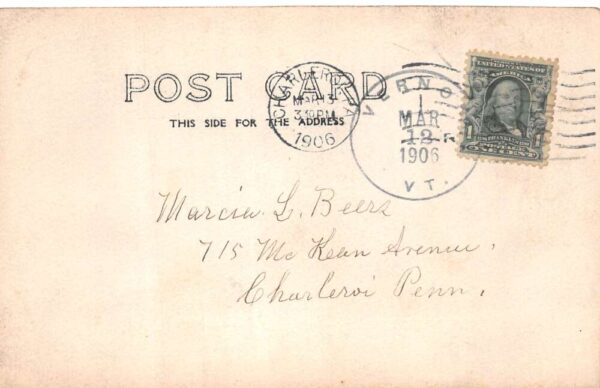 POST CARD
THIS SIDE FOR THE ADDRESS
CHARLEROI, PA
MAR 13
330 PM
1906
VERNON
MAR
12
1906
VT.
UNITED STATES OF
AMERICA
1
ONE CENT
Marcia L. Beers
715 Mc Kean Avenue.
Charleroi Penn.